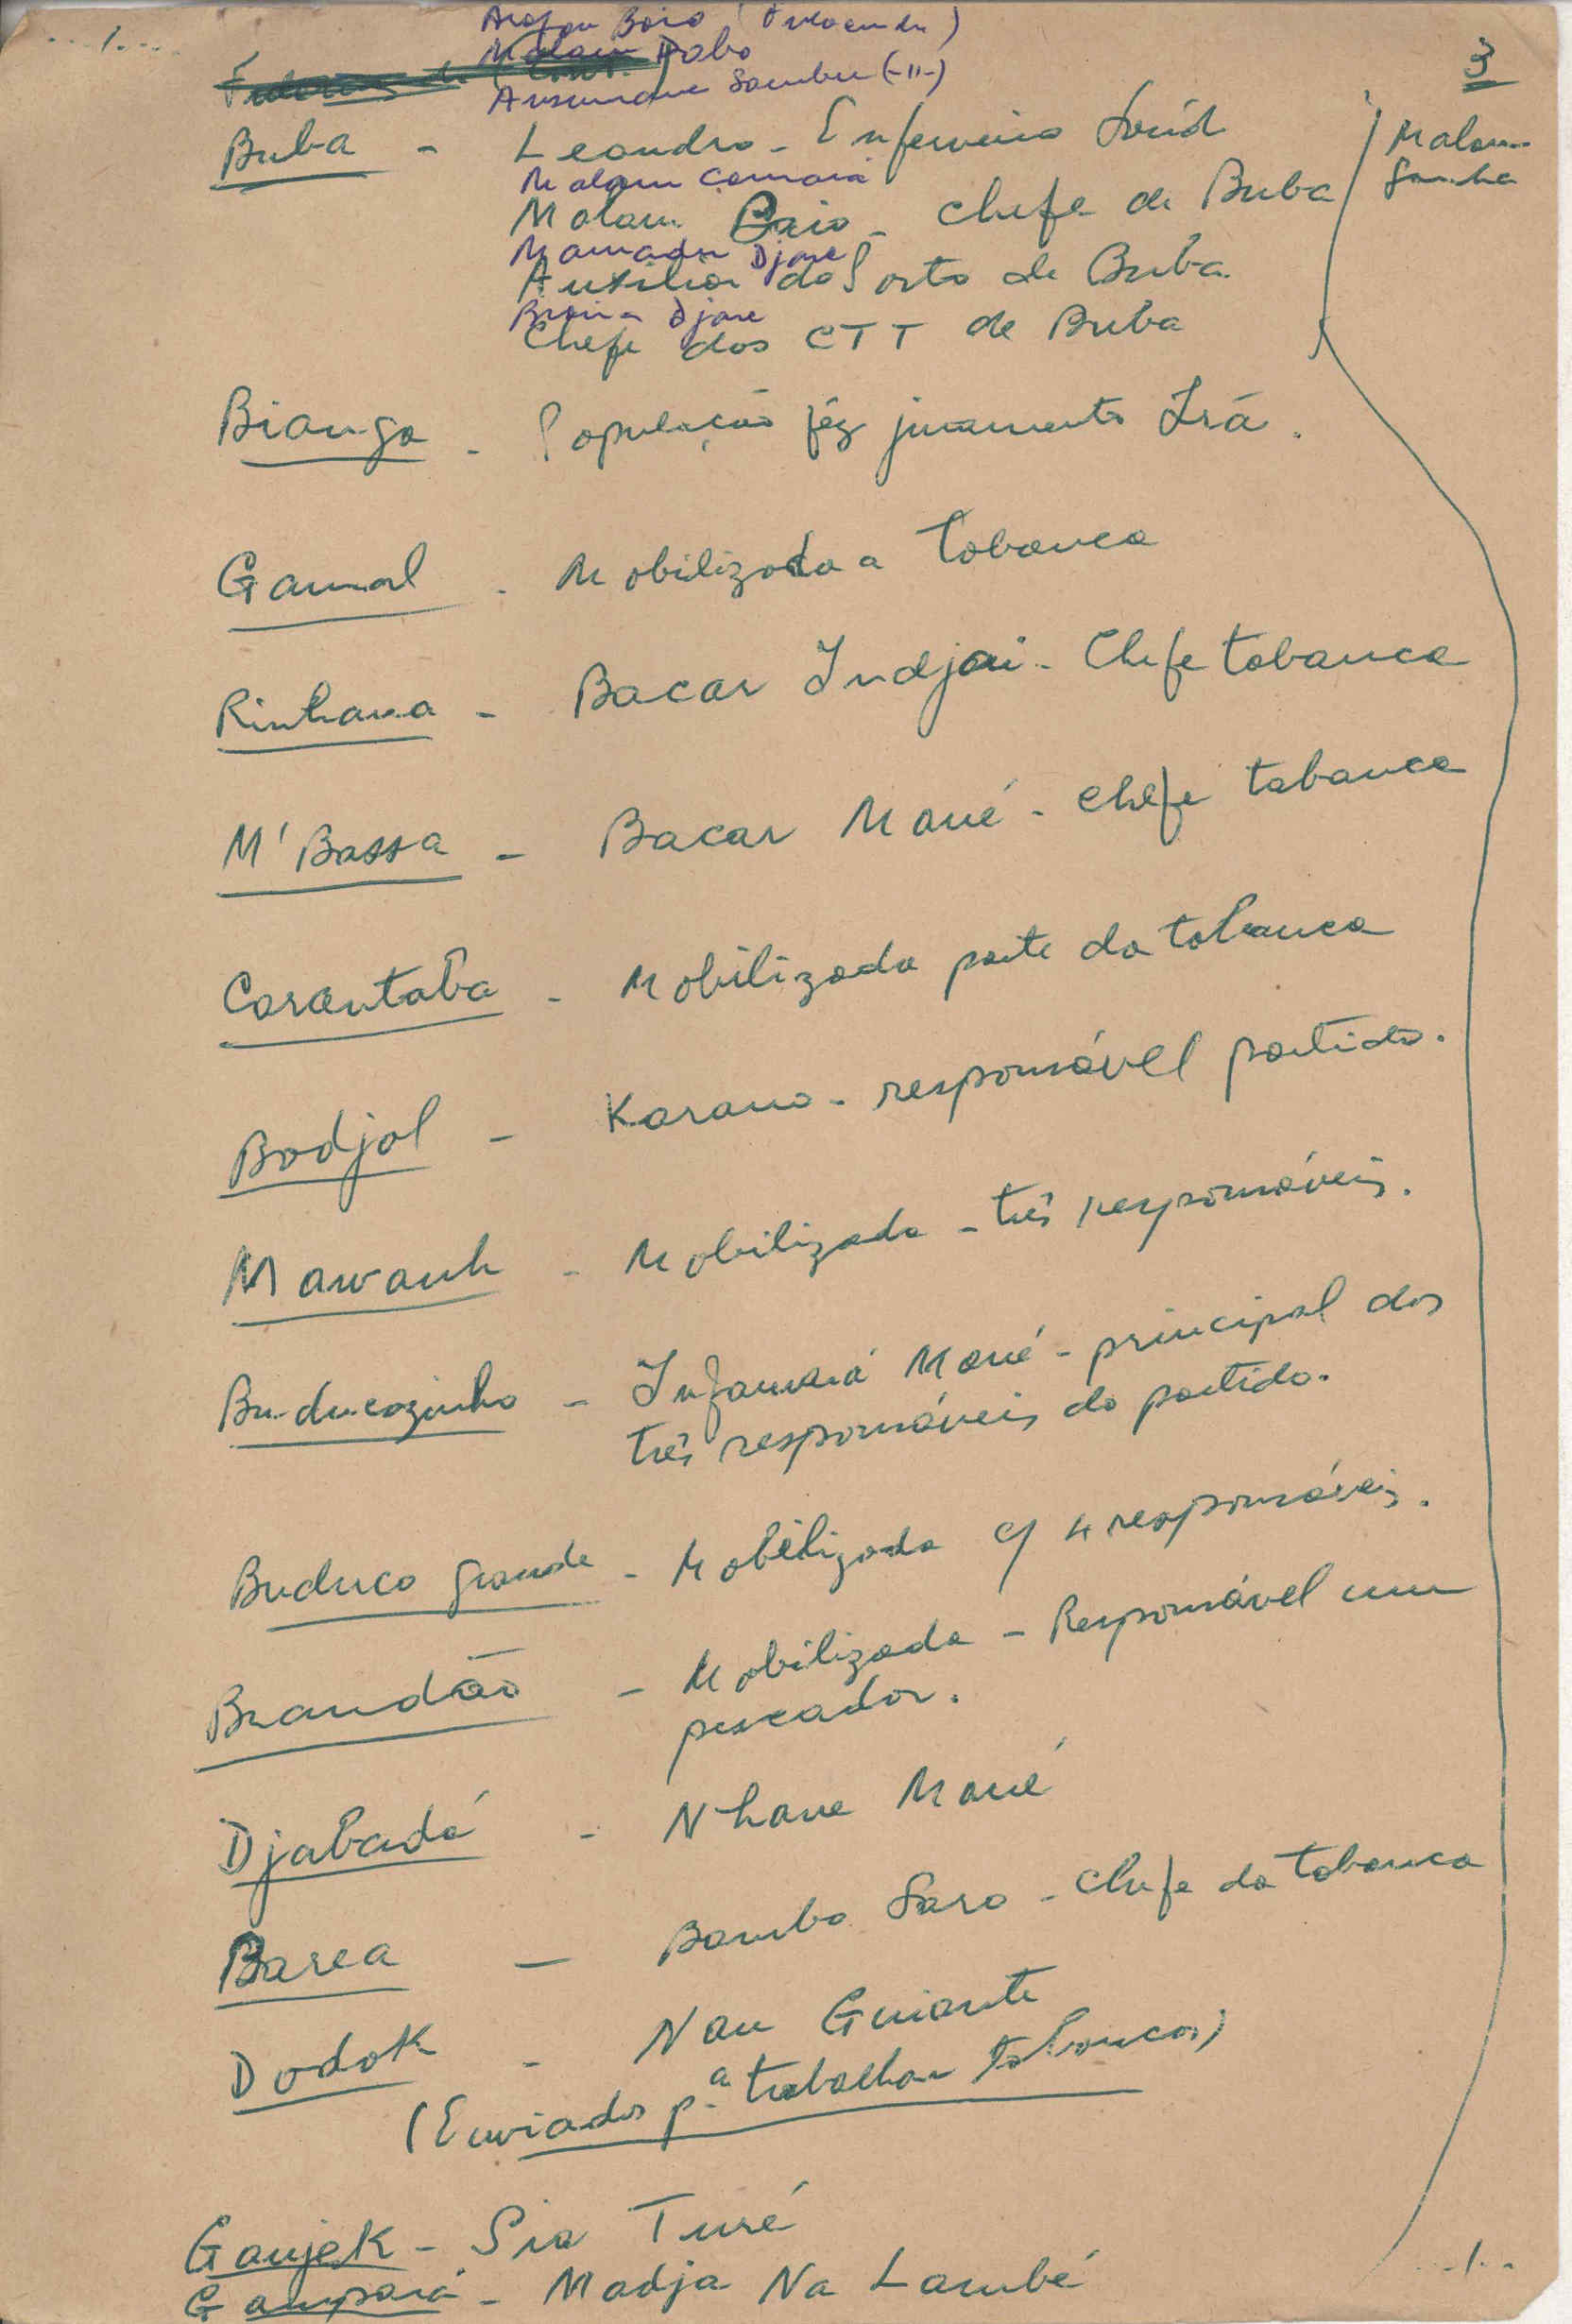 .../...
3
Baio
Dabo
(-11-)
Buba - Leandro - Enfermeiro
Malam Camará
Malam Baio - Chefe de Buba
Malam Sanha
Mamadu Djane
Auxiliar do Porto de Buba.
Djane
Chefe dos CTT de Buba
Bianga - População fêz juramento Irã.
Gamol - Mobilizada a tabanca
Rinhana - Bacar Indjai - Chefe tabanca
M'Bassa - Bacar Mané - Chefe tabanca
Carantaba - Mobilizada parte da tabanca
Bodjol - Karano - responsável partido.
Mawanh - Mobilizada - três responsáveis.
Buducozinho - Infamará Mané - principal dos
três responsáveis do partido.
Buduco grande - Mobilizada c/ 4 responsáveis.
Brandão - Mobilizada - Responsável um
pescador.
Djabadá - Nhane Mané
Barea - Bambo Saro - Chefe da tabanca
Dodok - Nan Guiante
(Enviados pª trabalhar tabancas)
Ganjek - Sia Turé
Gampará - Madja Na Lambé
.../...